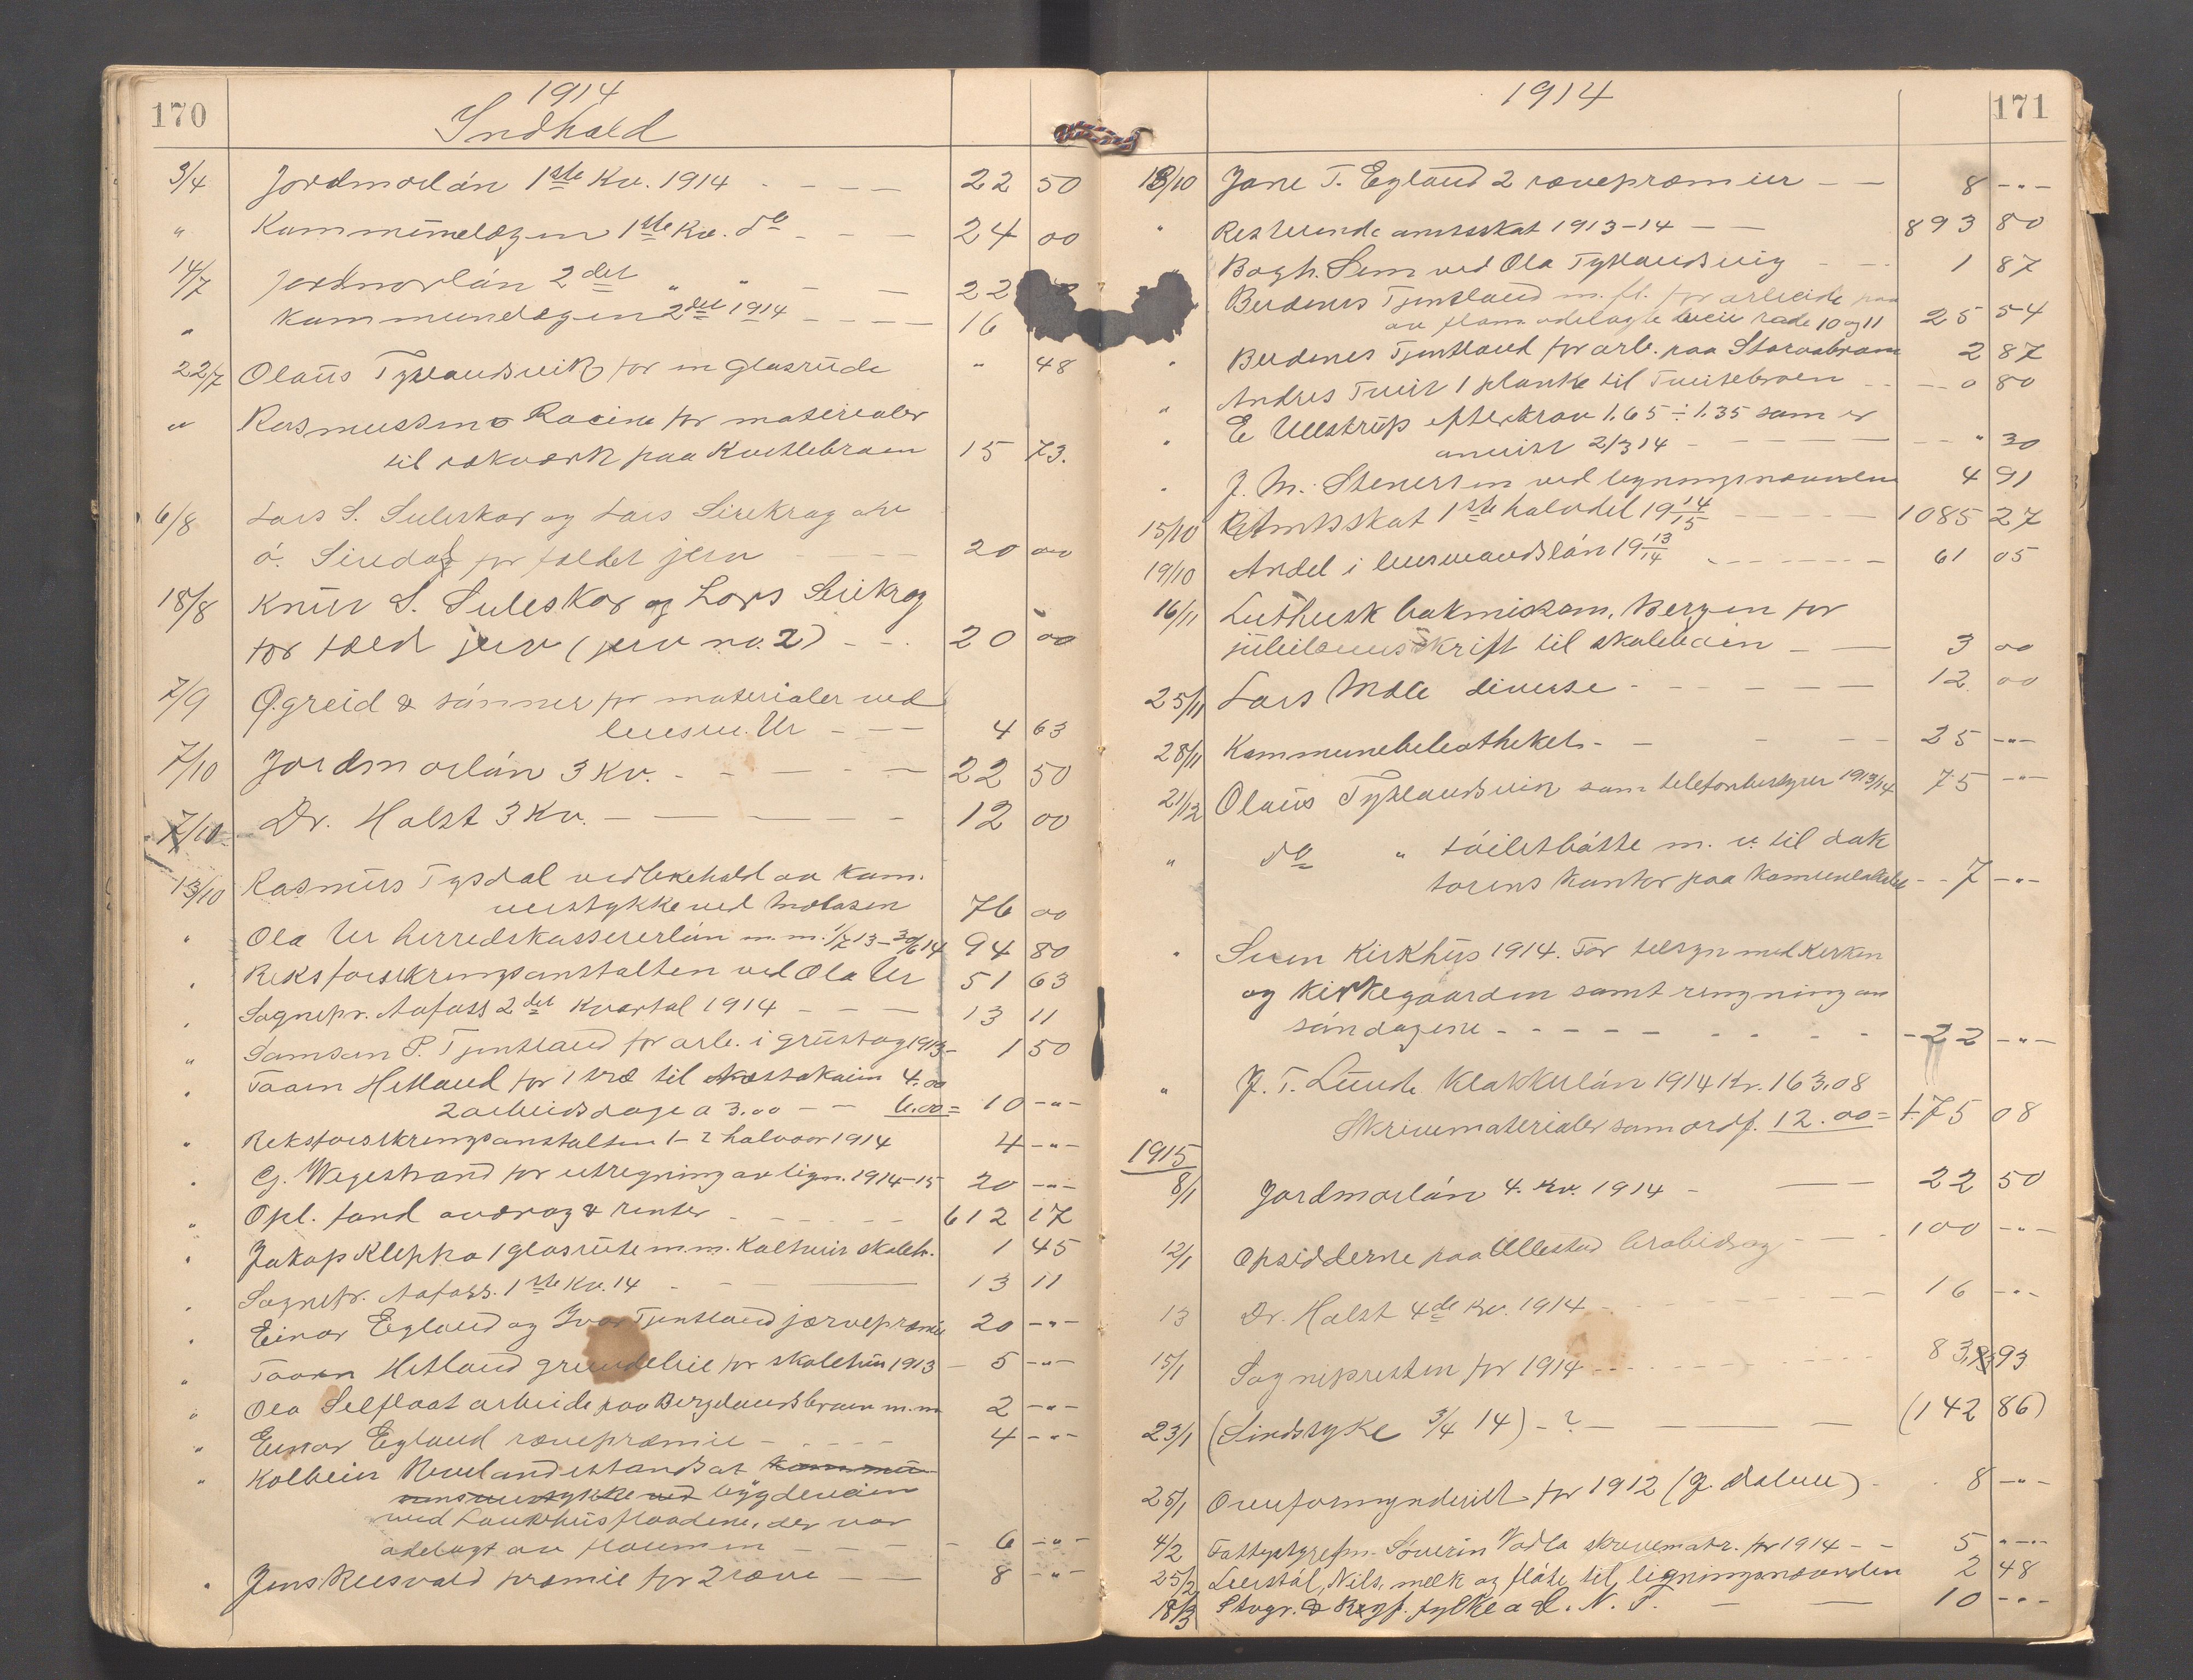 170
1914
Indhald
3/4 Jordmorlön 1ste Kv. 1914 - - - - 22 50
" Kommunelægen 1ste Kv. do - - - 24 00
14/7 Jordmorlön 2det " " - - 22
" Kommunelægen 2det 1914 - - - - 16
22/7 Olaus Tyslandsvik for en glasrude " 48
" Rasmussen & Racine for materialer
til rækværk paa Kvitlebroen 15 73.
6/8 Lars S. Suleskar og Lars Sirekrog
ö. Siredal for fældet jerv - - - 20 00
18/8 Knut S. Suleskar og Lars Sirekrog
for fæld jerv (jerv no. 2) - - . 20 00
7/9 Ögreid & sönner for materialer ved
lensm. Ur - - - 4 63
7/10 Jordmorlön 3 Kv. - - - - - 22 50
7/10 Dr. Halst 3 Kv. - - - - - 12 00
13/10 Rasmus Tysdal vedlikehald av kom.
veistykke ved Molasen 76 00
" Ola Ur herredskassererlön m.m. 1/7 13 - 30/6 14 94 80
" Riksforsikringsanstalten ved Ola Ur 51 63
" Sognepr. Aafoss 2det Kvartal 1914 - - - 13 11
" Samson P. Tjentland for arb. i grustag 1913 - 1 50
" Taarn Hetland for 1 træ til 4.00
2 arbeidsdage a 3.00 - - 6.00 = 10 -"-
" Riksforsikringsanstalten 1-2 halvaar 1914 4 -"-
" Cj. Wegestrand for utregning av lign. 1914-15 20 -"-
" Opl. fond avdrag & renter - - - - 612 17
" Jakop Kleppa 1 glasrute m.m. skoleh. 1 45
" Sognepr. Aafoss. 1ste Kv. 14 - - 13 11
" Einar Egland og Ivar Tjentland jærvepræmie 20 -"-
" Taarn Hetland grundleie for skolehus 1913 - 5 -"-
" Ola Selflaat arbeide paa Bergelandsbroen m.m 2 -"-
" Einar Egland rævepræmie - - - - 4 -"-
" Kolbein Nevland istandsat kommu-
nens veistykke ved bygdeveien
ved Laukhusflaadene, der var
ödelagt av flommen - - - - 6 -"-
" Jens Resvald premie for 2 ræve - - 8 -"-
1914
171
13/10 Jone T. Egland 2 rævepræmier - - 8 -"-
" Resterende amtsskat 1913-14 - - 893 80
Bogh. Sem ved Ola Tyslandsvig - - 1 87
Berdines Tjentland m. fl. for arbeide paa
av flom ödelagte veie rode 10 og 11 25 54
" Berdines Tjentland for arb. paa Storaabroen 2 87
" Andres Tveit 1 planke til Tveitebroen - - 0 80
" E Ullstrup efterkrav 1.65 ÷ 1.35 som er
anvist 2/3 14 - - - - - " 30
" J. M. Stenersen ved ligningsnævnden 4 91
15/10 Amtsskat 1ste halvdel 19 14/15 - - - 1085 27
19/10 Andel i lensmandslön 19 13/14 - - - - 61 05
16/11 Luthersk Bergen for
jubilæumsskrift til skoleboen - - 3 00
25/11 Lars Mæle diverse - - - - - 12 00
28/11 Kommunebibliotheket - - - - 25 -"-
21/12 Olaus Tyslandsvik som telefonbestyrer 1913/14 75 -"-
" do " toiletbötte m. v. til dok
torens kontor paa kommunelokalet - - 7 -"-
" Sven Kirkhus 1914. For tilsyn med kirken
og kirkegaarden samt ringning om
söndagene - - - - - - - - - 22 -"-
" J. T. Lunde Klokkerlön 1914 Kr. 163.08
Skrivematerialer som ordf. 12.00 = 175 08
1915
8/1 Jordmorlön 4. Kv. 1914 - - - 22 50
12/1 Opsidderne paa Ullestad brobidrag - - 100 -"-
13 Dr. Halst 4de Kv. 1914 - - - - 16 -"-
15/1 Sognepresten for 1914 - - - - 83 93
23/1 (Sindssyke 3/4 14) - ? - - - (142 86)
25/1 Overformynderiet for 1912 (J. Dalene) - 8 -"-
4/2 Fattigstyrefm. Severin Vadla skrivematr. for 1914 - - 5 -"-
25/2 Leirstöl, Nils, melk og flöte til ligningsnævnden 2 48
18/3 Stvgr. & Rogf. fylke a L. N. F. - - 10 -"-